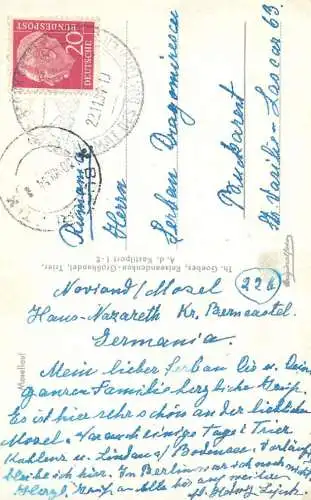 20
DEUTSCHE
BUNDESPOST
Rumänia
Herrn
Serban Dragomirescu
Bucharest
Str Vasile-Lascar 63.
Th. Goebes, Reiseandenken-Großhandel, Trier,
A. d. Kastilport 1-2
Mosellauf
Noviand/Mosel
226
Haus-Nazareth Kr. Berncastel.
Germania.
Mein lieber Serban Dir u. Deiner
ganzen Familie herzliche Grüße.
Es ist hier sehr schön an der lieblichen
Mosel. War auch einige Tage i. Trier
Koblenz u. Lindau/Bodensee. Vorläufig
bleibe ich hier. In Berlin war ich noch nicht
Herzl. Grüße an Alle